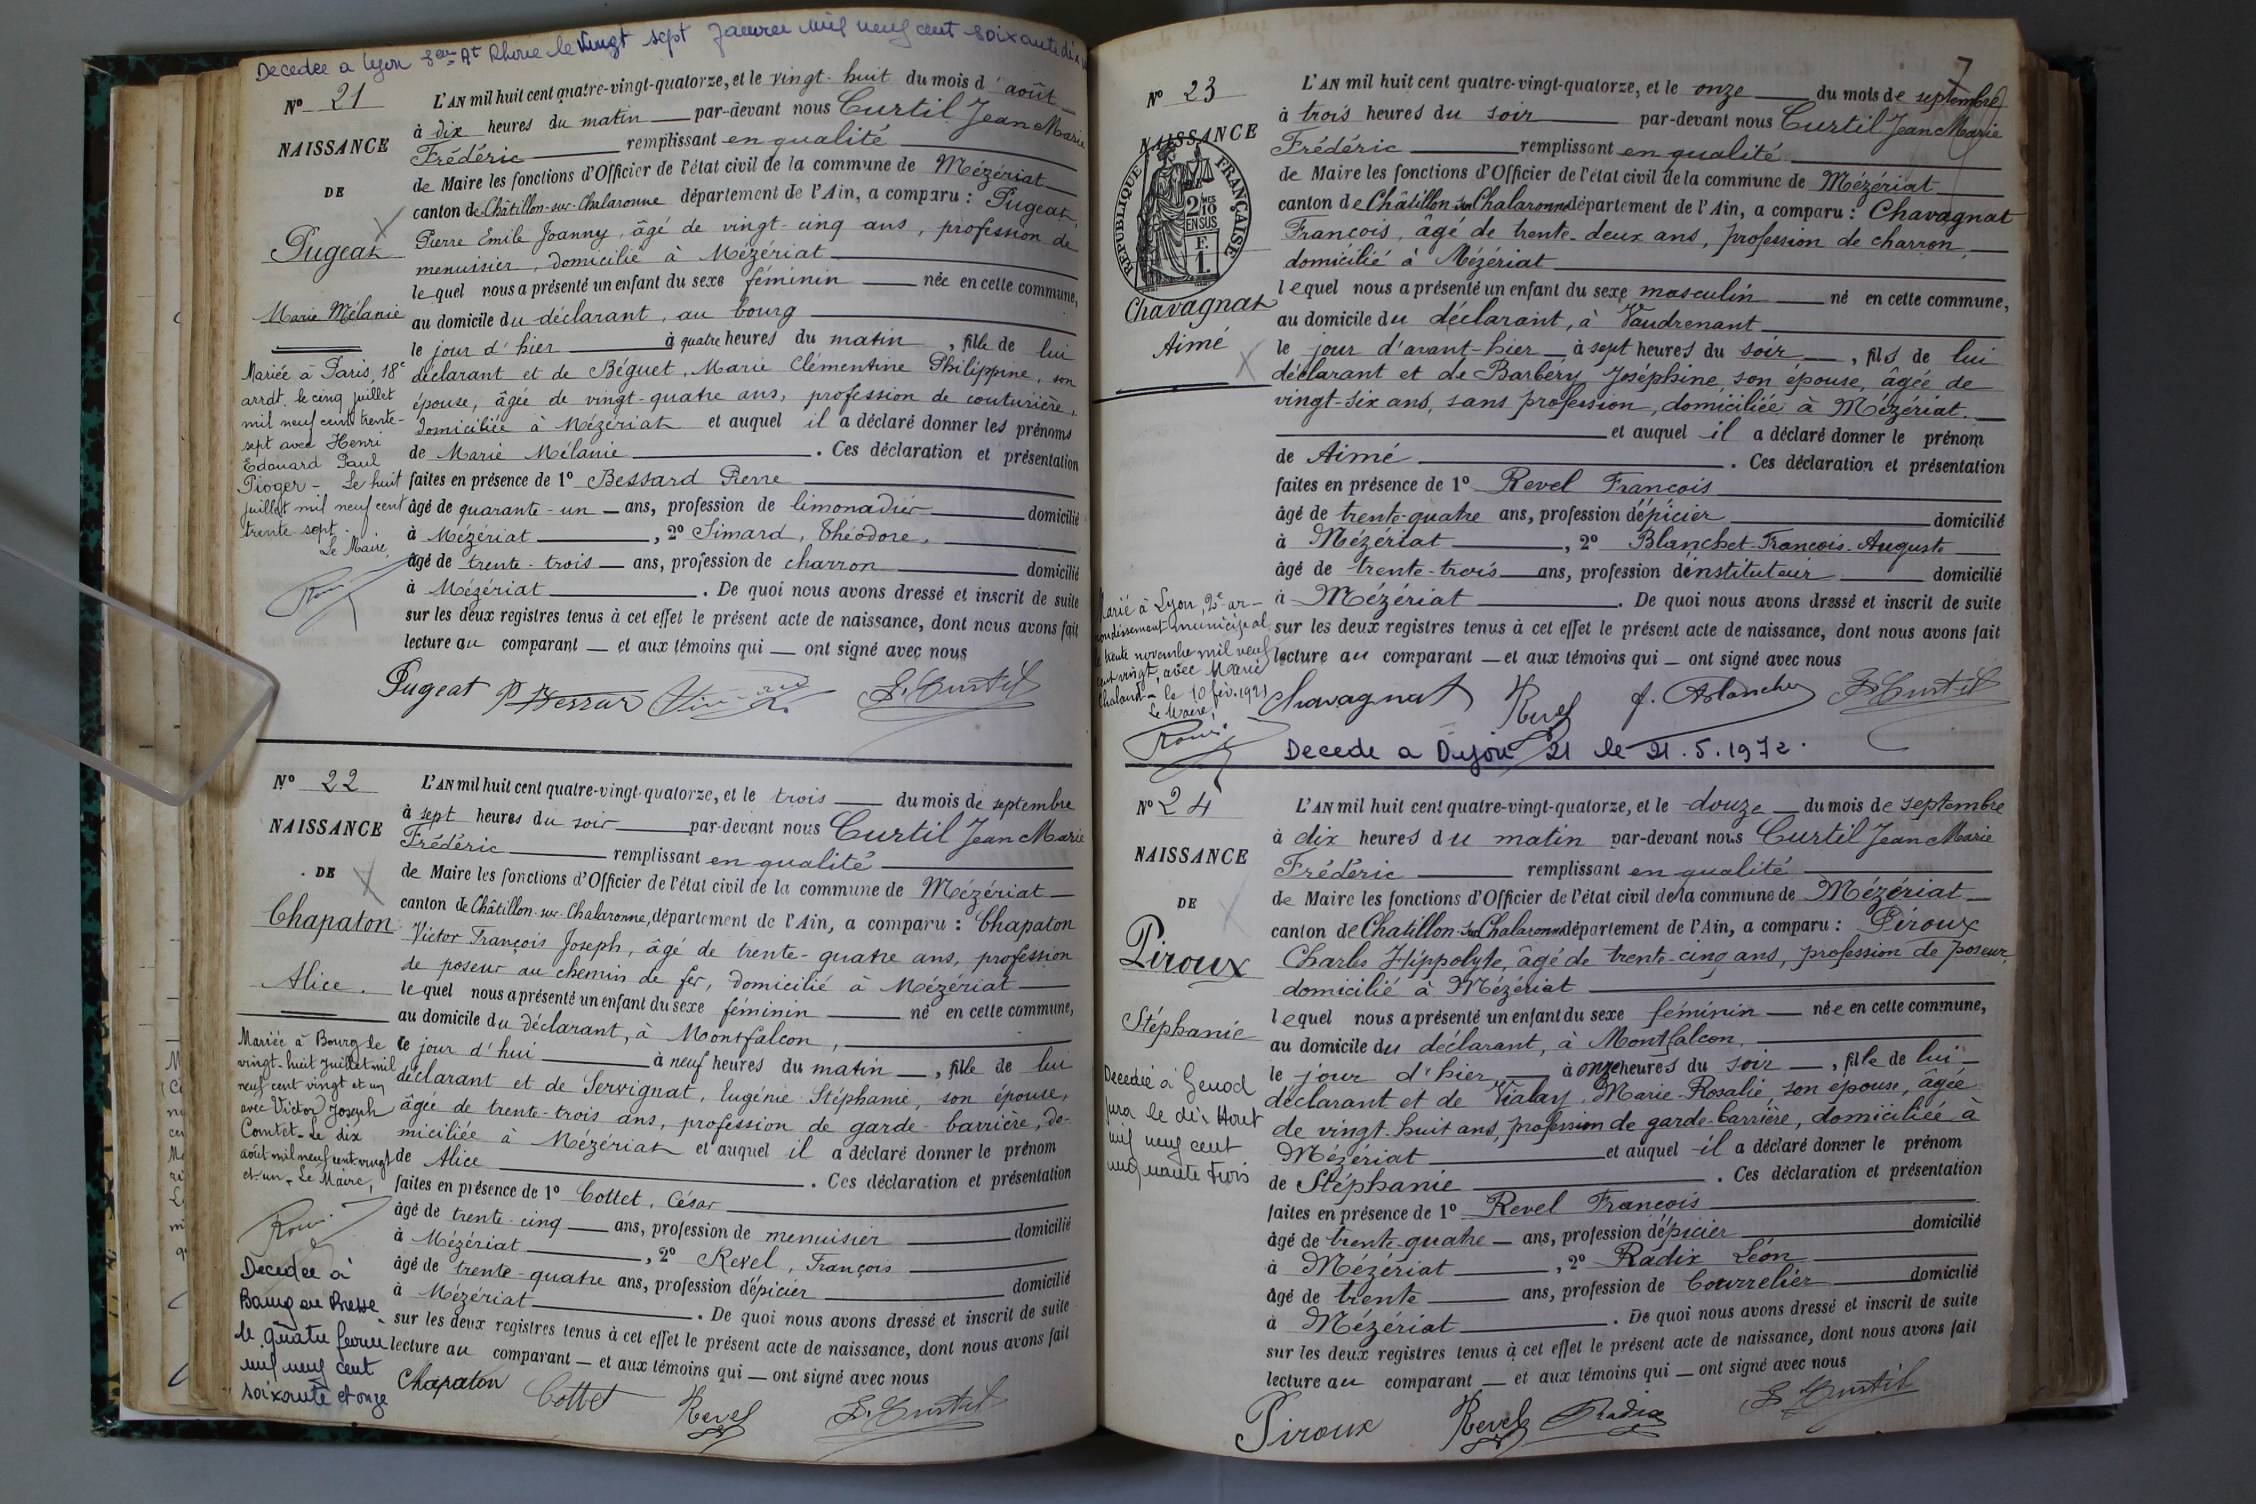 Decedee a Lyon 3em At Rhone le vingt sept Janvier mil neuf cent soixante dix
N° 21
NAISSANCE
DE
Pugeat
Marie Mélanie
Mariée à Paris, 18e
arrdt. le cinq juillet
mil neuf cent trente-
sept avec Henri
Edouard Paul
Pioger - Le huit
juillet mil neuf cent
trente-sept.
Le Maire,
L'AN mil huit cent quatre-vingt-quatorze, et le vingt-huit du mois d'août
à dix heures du matin par-devant nous Curtil Jean Marie
Frédéric remplissant en qualité
de Maire les fonctions d'Officier de l'état civil de la commune de Mézériat
canton de Châtillon-sur-Chalaronne département de l'Ain, a comparu : Pugeat
Pierre Emile Joanny, âgé de vingt-cinq ans, profession de
menuisier, domicilié à Mézériat
lequel nous a présenté un enfant du sexe féminin née en cette commune,
au domicile du déclarant, au bourg
le jour d'hier à quatre heures du matin, fille de lui
déclarant et de Béguet, Marie Clémentine Philippine, son
épouse, âgée de vingt-quatre ans, profession de couturière,
domiciliée à Mézériat et auquel il a déclaré donner les prénoms
de Marie Mélanie. Ces déclaration et présentation
faites en présence de 1° Bessard Pierre
âgé de quarante-un ans, profession de limonadier domicilié
à Mézériat, 2° Simard, Théodore,
âgé de trente-trois ans, profession de charron domicilié
à Mézériat. De quoi nous avons dressé et inscrit de suite
sur les deux registres tenus à cet effet le présent acte de naissance, dont nous avons fait
lecture au comparant et aux témoins qui ont signé avec nous
Pugeat P Bessard Simard F. Curtil
N° 22
NAISSANCE
DE
Chapaton
Alice.
Mariée à Bourg le
vingt-huit Juillet mil
neuf cent vingt et un
avec Victor Joseph
Comtet. Le dix
août mil neuf cent vingt
et-un. Le Maire,
Decedee à
Bourg en Bresse
le quatre fevrier
mil neuf cent
soixante et onze
L'AN mil huit cent quatre-vingt-quatorze, et le trois du mois de septembre
à sept heures du soir par-devant nous Curtil Jean Marie
Frédéric remplissant en qualité
de Maire les fonctions d'Officier de l'état civil de la commune de Mézériat
canton de Châtillon-sur-Chalaronne, département de l'Ain, a comparu : Chapaton
Victor François Joseph, âgé de trente-quatre ans, profession
de poseur au chemin de fer, domicilié à Mézériat
lequel nous a présenté un enfant du sexe féminin né en cette commune,
au domicile du déclarant, à Montfalcon,
le jour d'hui à neuf heures du matin, fille de lui
déclarant et de Servignat, Eugénie Stéphanie, son épouse,
âgée de trente-trois ans, profession de garde-barrière, do-
miciliée à Mézériat et auquel il a déclaré donner le prénom
de Alice. Ces déclaration et présentation
faites en présence de 1° Cottet, César
âgé de trente-cinq ans, profession de menuisier domicilié
à Mézériat, 2° Revel, François
âgé de trente-quatre ans, profession d'épicier domicilié
à Mézériat. De quoi nous avons dressé et inscrit de suite
sur les deux registres tenus à cet effet le présent acte de naissance, dont nous avons fait
lecture au comparant et aux témoins qui ont signé avec nous
Chapaton Cottet Revel F. Curtil
7
N° 23
NAISSANCE
RÉPUBLIQUE FRANÇAISE
2/10
EN SUS
F.
1.
Chavagnat
Aimé
Marié à Lyon, 2e ar-
rondissement municipal
le trente novembre mil neuf
cent vingt, avec Marie
Chaland - le 10 fév. 1921
Le Maire,
L'AN mil huit cent quatre-vingt-quatorze, et le onze du mois de septembre
à trois heures du soir par-devant nous Curtil Jean Marie
Frédéric remplissant en qualité
de Maire les fonctions d'Officier de l'état civil de la commune de Mézériat
canton de Châtillon-sur-Chalaronne département de l'Ain, a comparu : Chavagnat
François, âgé de trente-deux ans, profession de charron,
domicilié à Mézériat
lequel nous a présenté un enfant du sexe masculin né en cette commune,
au domicile du déclarant, à Vaudrenant
le jour d'avant-hier à sept heures du soir, fils de lui
déclarant et de Barbery Joséphine, son épouse, âgée de
vingt-six ans, sans profession, domiciliée à Mézériat.
et auquel il a déclaré donner le prénom
de Aimé. Ces déclaration et présentation
faites en présence de 1° Revel François
âgé de trente-quatre ans, profession d'épicier domicilié
à Mézériat, 2° Blanchet-François-Auguste
âgé de trente-trois ans, profession d'instituteur domicilié
à Mézériat. De quoi nous avons dressé et inscrit de suite
sur les deux registres tenus à cet effet le présent acte de naissance, dont nous avons fait
lecture au comparant et aux témoins qui ont signé avec nous
Chavagnat Revel f. Blanchet F. Curtil
Decede a Dijon 21 le 21.5.1972.
N° 24
NAISSANCE
DE
Piroux
Stéphanie
Decedeé à Genod
jura le dix Aout
mil neuf cent
cinquante trois
L'AN mil huit cent quatre-vingt-quatorze, et le douze du mois de septembre
à dix heures du matin par-devant nous Curtil Jean Marie
Frédéric remplissant en qualité
de Maire les fonctions d'Officier de l'état civil de la commune de Mézériat
canton de Chatillon-sur-Chalaronne département de l'Ain, a comparu : Piroux
Charles Hippolyte, âgé de trente-cinq ans, profession de poseur,
domicilié à Mézériat
lequel nous a présenté un enfant du sexe féminin née en cette commune,
au domicile du déclarant, à Montfalcon,
le jour d'hier à onze heures du soir, fille de lui
déclarant et de Vialay, Marie-Rosalie, son épouse, âgée
de vingt-huit ans, profession de garde-barrière, domiciliée à
Mézériat et auquel il a déclaré donner le prénom
de Stéphanie. Ces déclaration et présentation
faites en présence de 1° Revel François
âgé de trente-quatre ans, profession d'épicier domicilié
à Mézériat, 2° Radix Léon
âgé de trente ans, profession de Courrelier domicilié
à Mézériat. De quoi nous avons dressé et inscrit de suite
sur les deux registres tenus à cet effet le présent acte de naissance, dont nous avons fait
lecture au comparant et aux témoins qui ont signé avec nous
Piroux Revel Radix F. Curtil